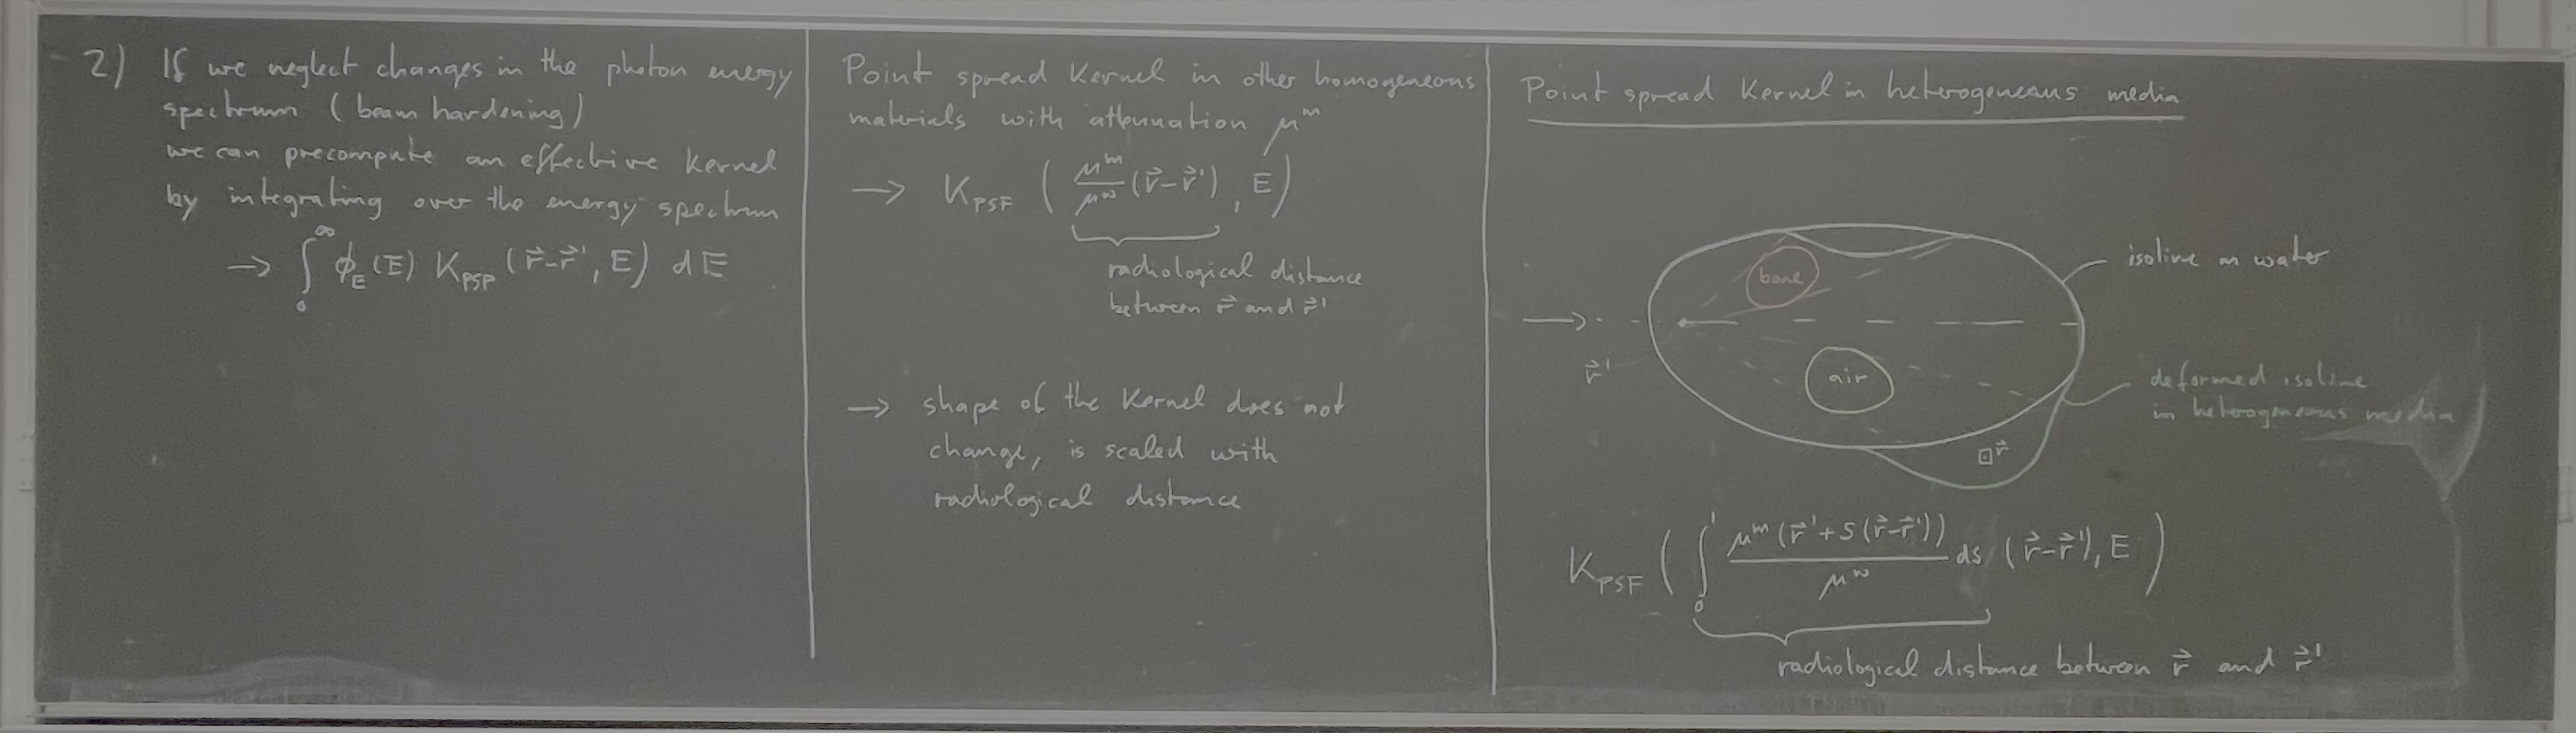 2) If we neglect changes in the photon energy
spectrum (beam hardening)
we can precompute an effective Kernel
by integrating over the energy spectrum
→ ∫₀^∞ ϕ_E(E) K_PSF (r⃗-r⃗', E) dE
Point spread Kernel in other homogeneous
materials with attenuation μ^m
→ K_PSF ( μ^m/μ^w (r⃗-r⃗'), E )
radiological distance
between r⃗ and r⃗'
→ shape of the Kernel does not
change, is scaled with
radiological distance
Point spread Kernel in heterogeneous media
bone
isoline in water
r⃗'
air
deformed isoline
in heterogeneous media
r⃗
K_PSF ( ∫₀^1 μ^m(r⃗'+s(r⃗-r⃗'))/μ^w ds (r⃗-r⃗'), E )
radiological distance between r⃗ and r⃗'